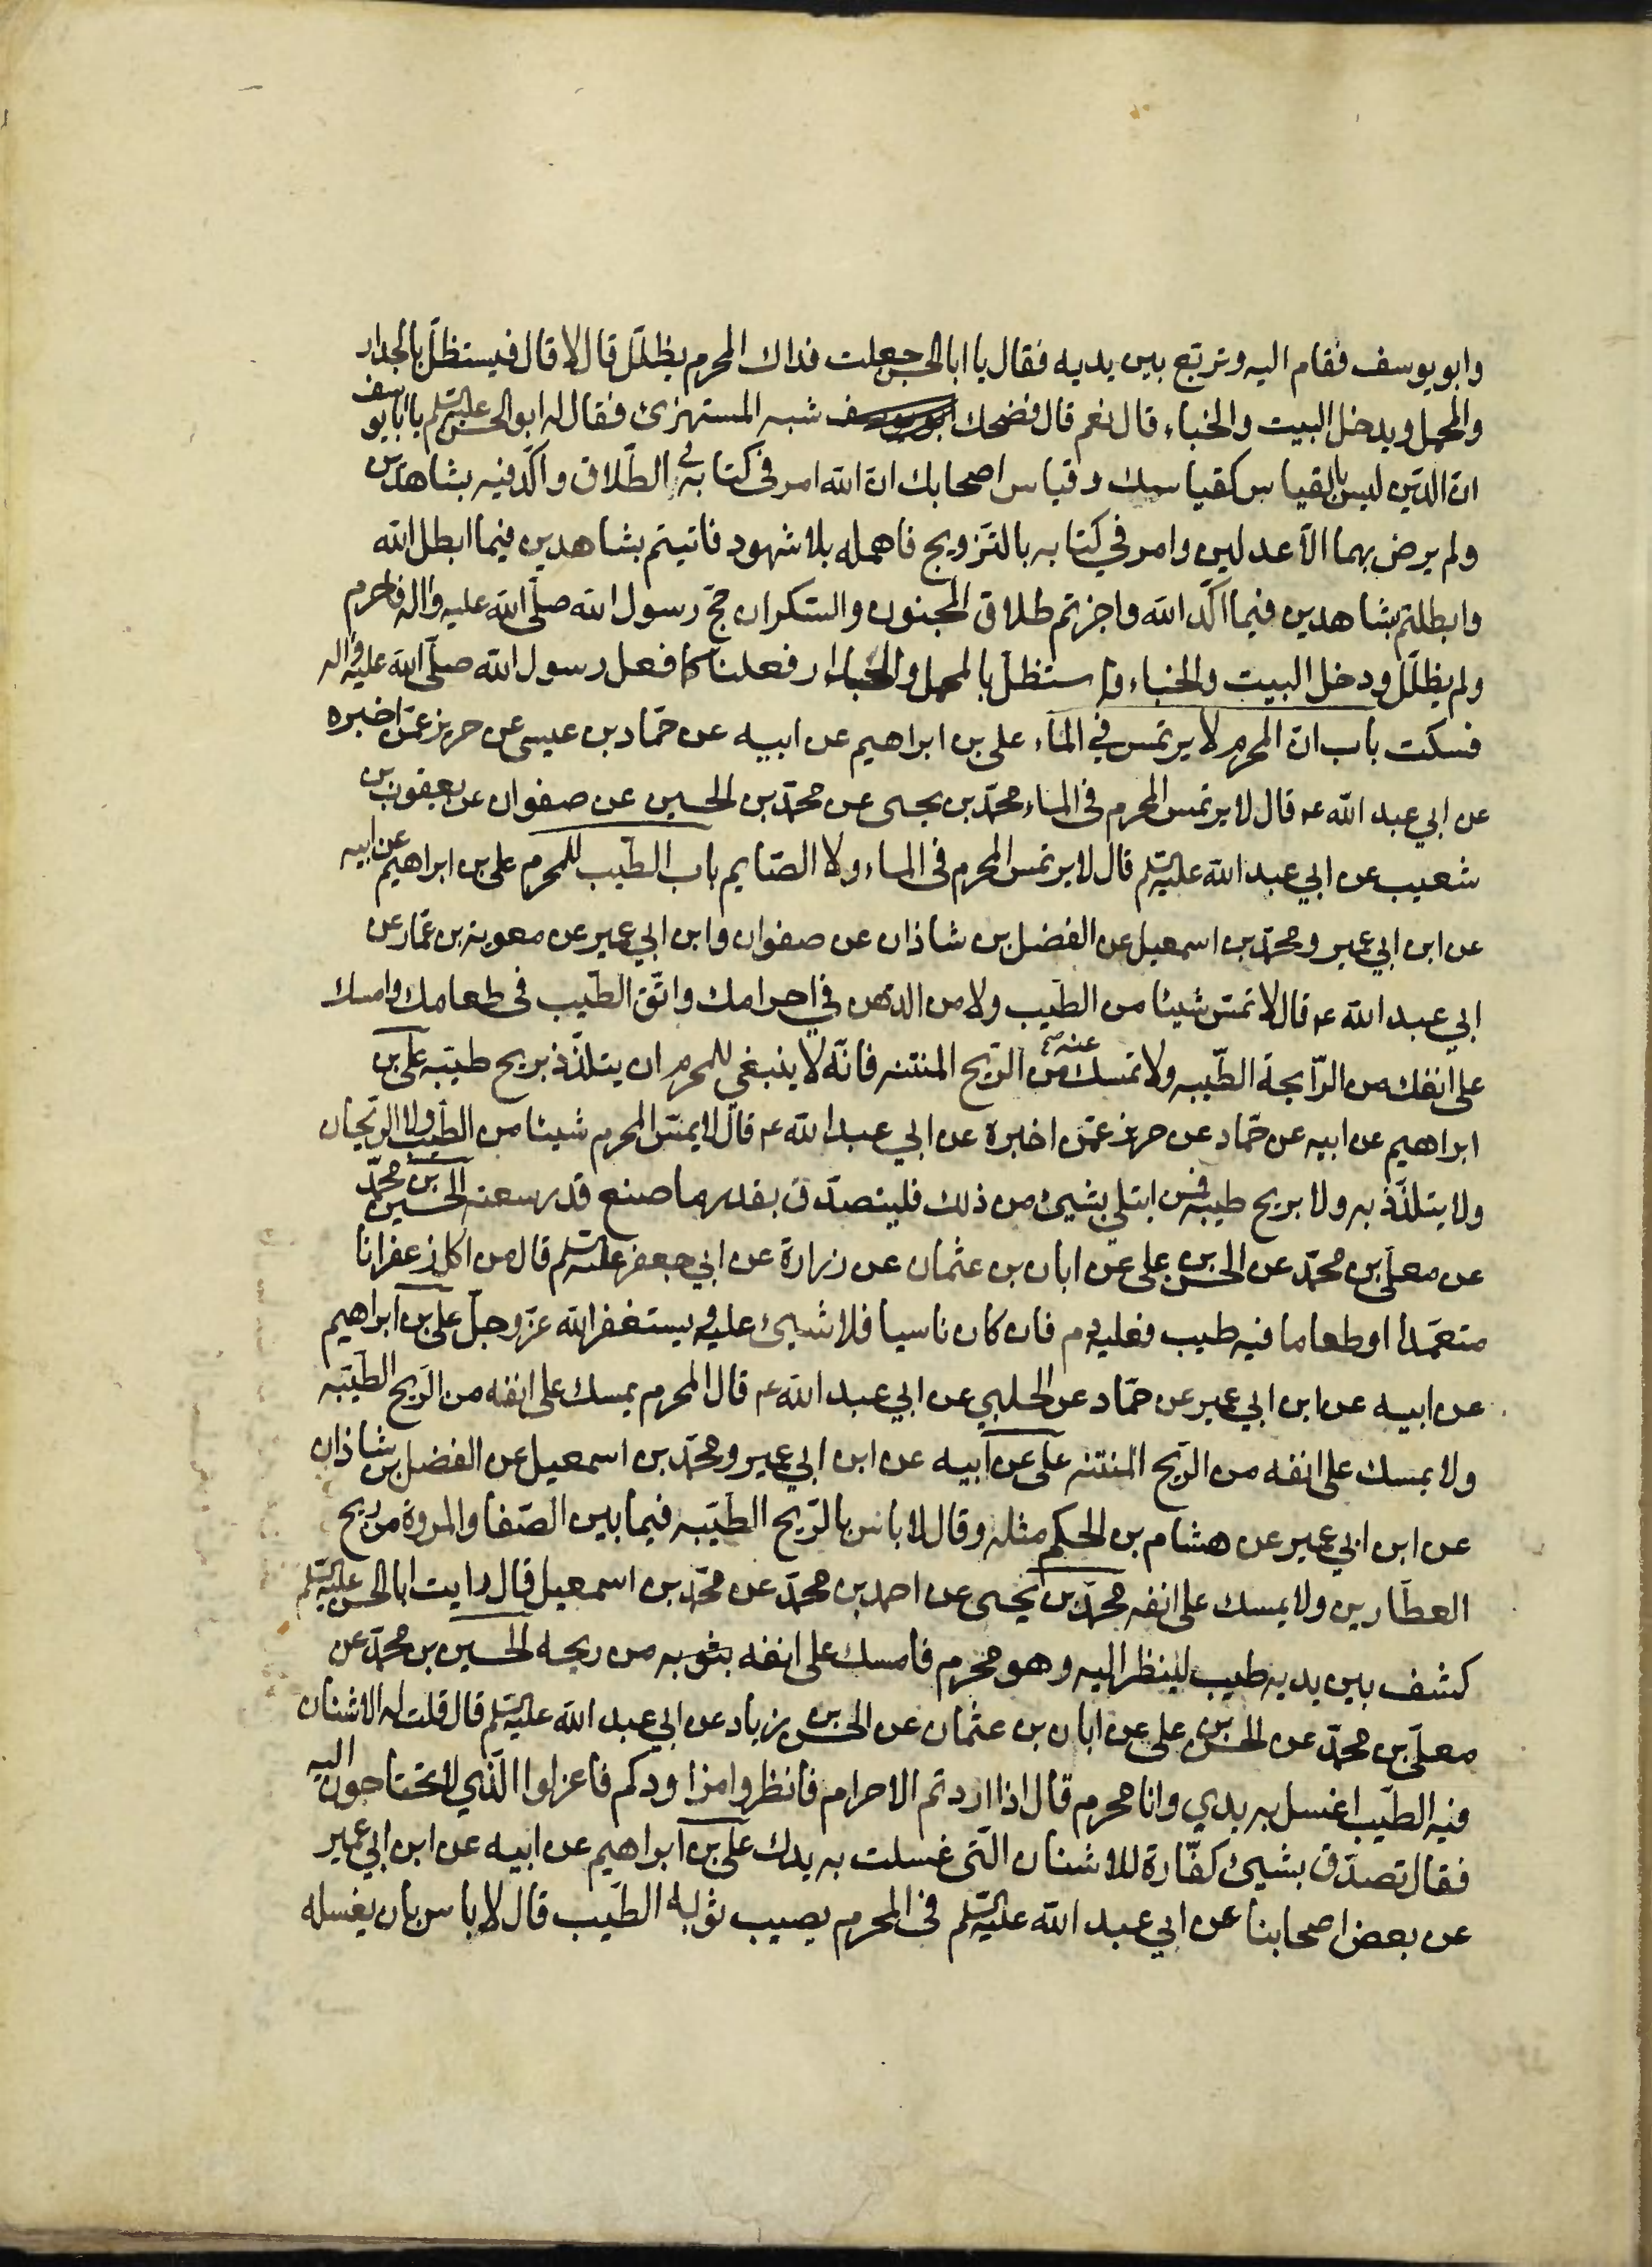 وابويوسف فقام اليه وتربع بين يديه فقال يا ابا الحسن جعلت فداك المحرم يظلل قال لا قال فيستظل بالجدار
والمحمل ويدخل البيت والخباء قال نعم قال فضحك ابو يوسف شبه المستهزئ فقال له ابو الحسن عليه السلم يا ابا يوسف
ان الدين ليس بالقياس كقياسك وقياس اصحابك ان الله امر في كتابه في الطلاق واكد فيه بشاهدين
ولم يرض بهما الا عدلين وامر في كتابه بالتزويج فاهمله بلا شهود فاتيتم بشاهدين فيما ابطل الله
وابطلتم بشاهدين فيما اكد الله واجزتم طلاق المجنون والسكران حج رسول الله صلى الله عليه واله فاحرم
ولم يظلل ودخل البيت والخباء واستظل بالمحمل والجدار فعلنا كما فعل رسول الله صلى الله عليه واله
فسكت باب ان المحرم لا يرتمس في الماء علي بن ابراهيم عن ابيه عن حماد بن عيسى عن حريز عمن اخبره
عن ابي عبد الله ع قال لا يرتمس المحرم فى الماء محمد بن يحيى عن محمد بن الحسين عن صفوان عن يعقوب بن
شعيب عن ابي عبد الله عليه السلم قال لا يرتمس المحرم فى الماء ولا الصايم باب الطيب للمحرم علي بن ابراهيم عن ابيه
عن ابن ابي عمير ومحمد بن اسمعيل عن الفضل بن شاذان عن صفوان وابن ابي عمير عن معوية بن عمار عن
ابي عبد الله ع قال لا تمس شيئا من الطيب ولا من الدهن في احرامك واتق الطيب فى طعامك وامسك
على انفك من الرايحة الطيبه ولا تمسك عنه من الريح المنتنه فانه لا ينبغي للمحرم ان يتلذذ بريح طيبه علي بن
ابراهيم عن ابيه عن حماد عن حريز عمن اخبره عن ابي عبد الله ع قال لا يمس المحرم شيئا من الطيب ولا الريحان
ولا يتلذذ به ولا بريح طيبه فمن ابتلي بشيئ من ذلك فليتصدق بقدر ما صنع قدر سعته الحسين بن محمد
عن معلى بن محمد عن الحسن بن علي عن ابان بن عثمان عن زرارة عن ابي جعفر عليه السلم قال من اكل زعفرانا
متعمدا او طعاما فيه طيب فعليه دم فان كان ناسيا فلا شيئ عليه ويستغفر الله عز وجل علي بن ابراهيم
عن ابيه عن ابن ابي عمير عن حماد عن الحلبي عن ابي عبد الله ع قال المحرم يمسك على انفه من الريح الطيبه
ولا يمسك على انفه من الريح المنتنه علي عن ابيه عن ابن ابي عمير ومحمد بن اسمعيل عن الفضل بن شاذان
عن ابن ابي عمير عن هشام بن الحكم مثله وقال لا باس بالريح الطيبه فيما بين الصفا والمروة من ريح
العطارين ولا يمسك على انفه محمد بن يحيى عن احمد بن محمد عن محمد بن اسمعيل قال رايت ابا الحسن عليه السلم
كشف بين يديه طيب لينظر اليه وهو محرم فامسك على انفه بثوبه من ريحه الحسين بن محمد عن
معلى بن محمد عن الحسن بن علي عن ابان بن عثمان عن الحسن بن زياد عن ابي عبد الله عليه السلم قال قلت له الاشنان
فيه الطيب اغسل به يدي وانا محرم قال اذا اردتم الاحرام فانظروا مزاودكم فاعزلوا الذي لا تحتاجون اليه
فقال تصدق بشيئ كفارة للاشنان التى غسلت به يدك علي بن ابراهيم عن ابيه عن ابن ابي عمير
عن بعض اصحابنا عن ابي عبد الله عليه السلم فى المحرم يصيب ثوبه الطيب قال لا باس بان يغسله